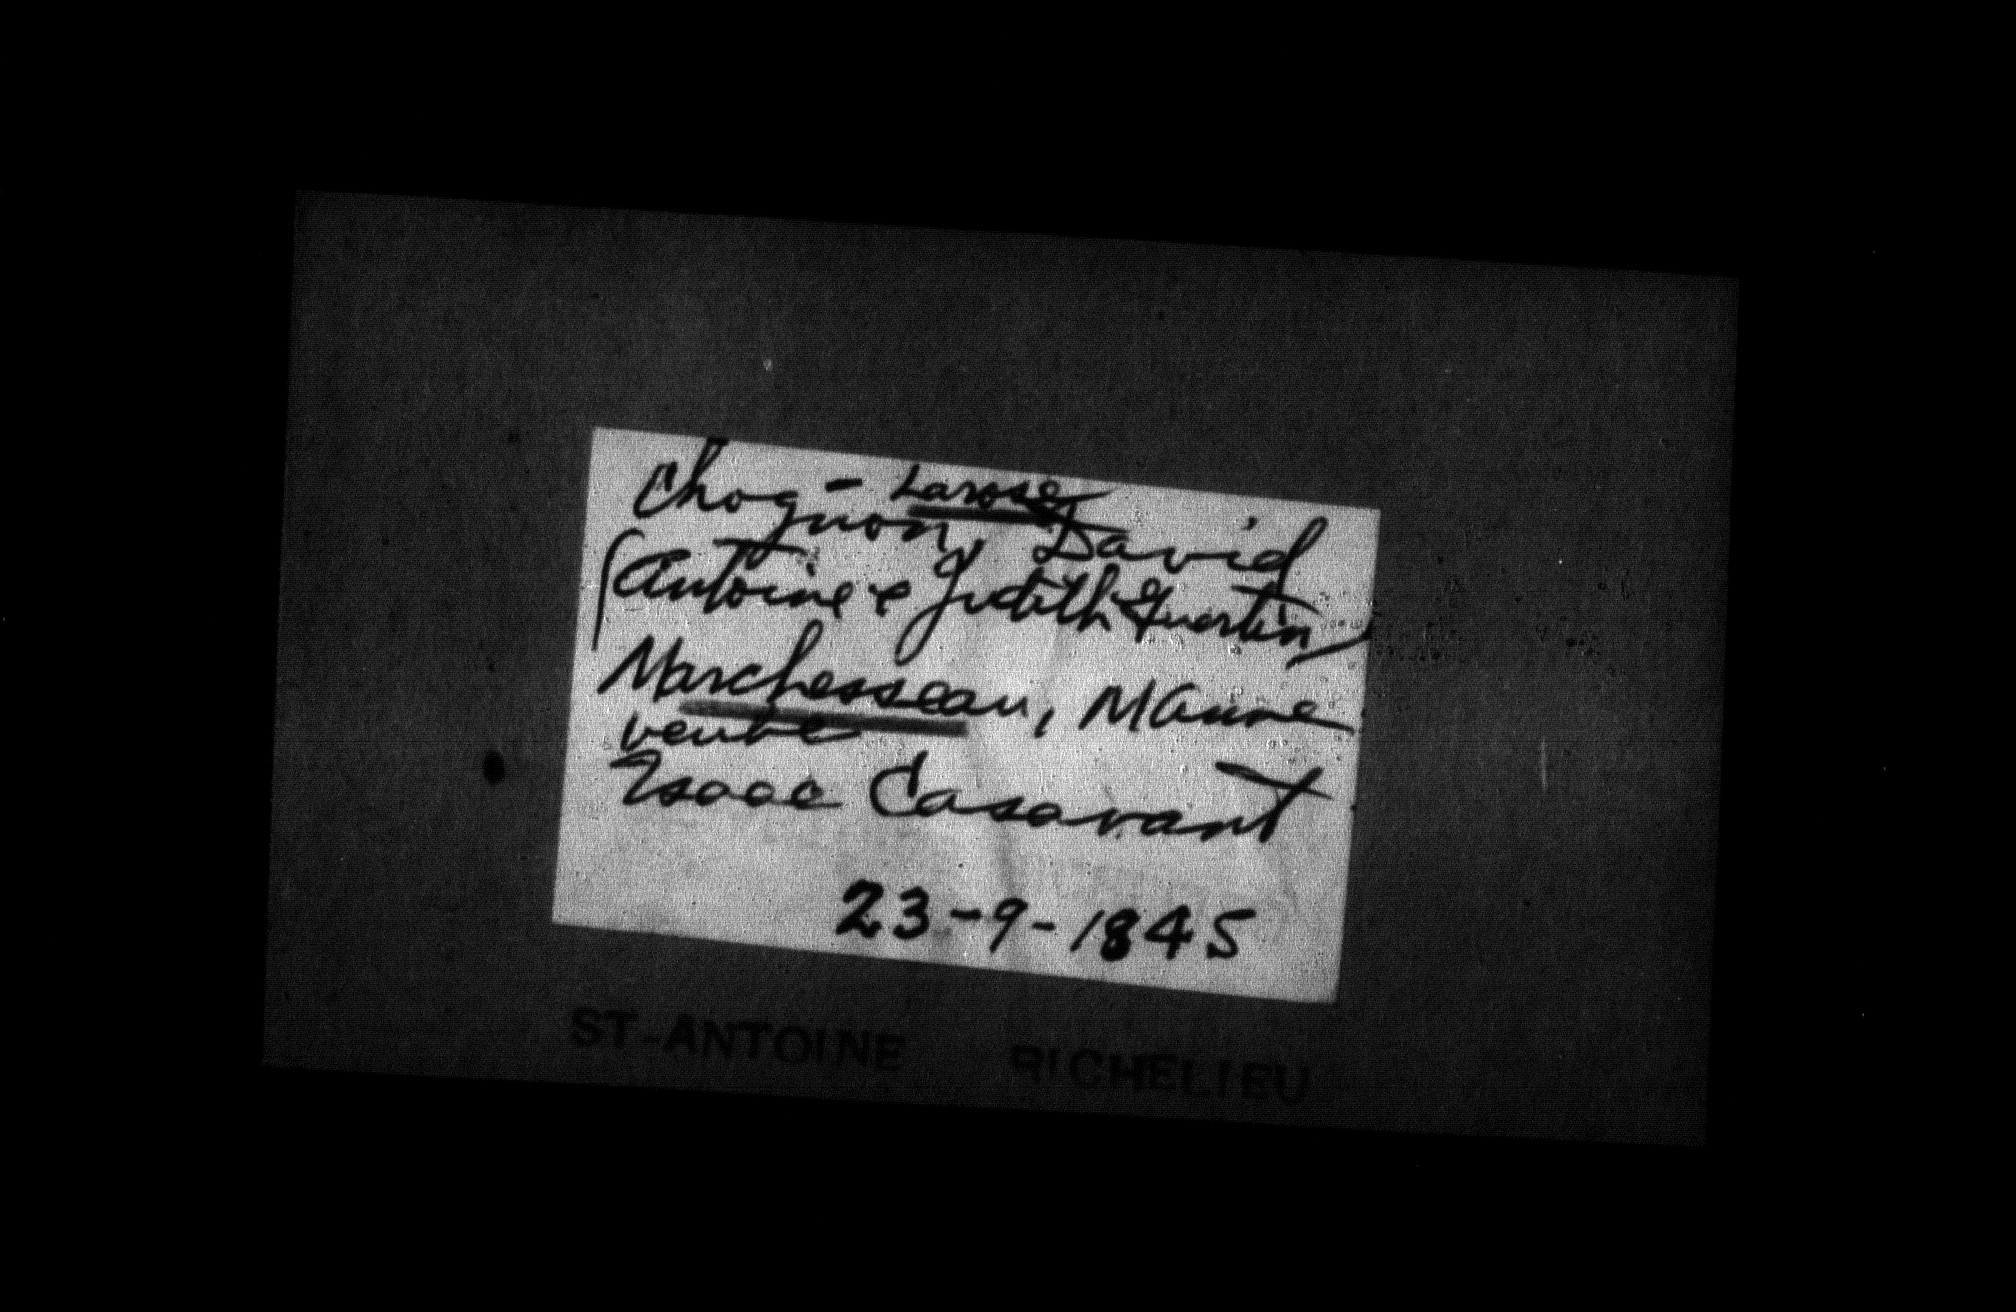 Chognon - Larose, David
(Antoine & Judith Guertin)
Marchesseau, M Anne
veuve
Isaac Casavant
23-9-1845
ST-ANTOINE RICHELIEU